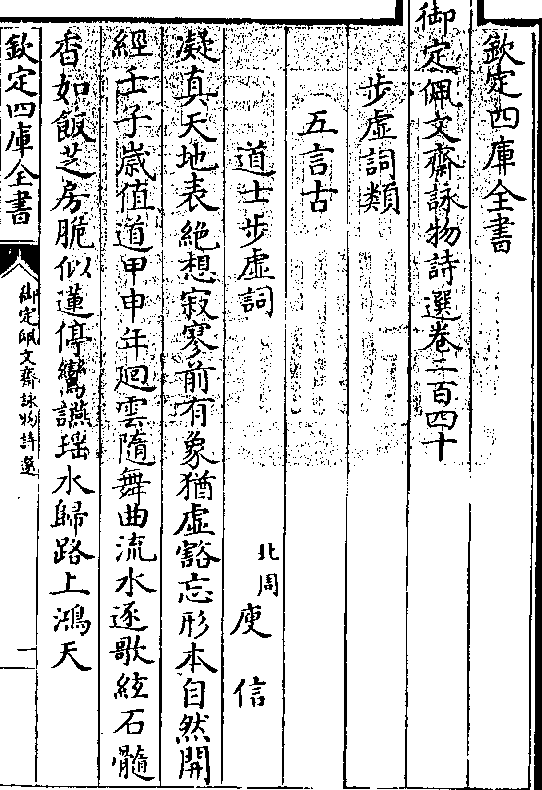 欽定四庫全書
御定佩文齋詠物詩選卷二百四十
步虛詞類
五言古
道士步虛詞 北周 庾信
凝真天地表絶想寂寥前有象猶虛豁忘形本自然開
經壬子嵗值道甲申年廻雲隨舞曲流水逐歌絃石髓
香如飯芝房脆似蓮停鸞讌瑶水歸路上鴻天
欽定四庫全書
御定佩文齋詠物詩選
一